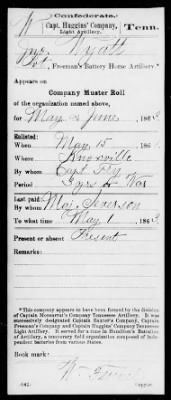 (Confederate.)
W Capt. Huggins' Company, Tenn.
Light Artillery.
Jno. Wyatt
Pvt, Freeman's Battery Horse Artillery*
Appears on
Company Muster Roll
of the organization named above,
for May & June, 1863
Enlisted:
When May 15, 1861
Where Knoxville
By whom Capt
Period 3 yrs or War
Last paid:
By whom Maj.
To what time May 1, 1863
Present or absent Present
Remarks:
*This company appears to have been formed by the Division
of Captain Monsarrat's Company Tennessee Artillery. It was
successively designated Captain Baxter's Company, Captain
Freeman's Company and Captain Huggins' Company Tennessee
Light Artillery. It served for a time in Hamilton's Battalion of
Artillery, a temporary field organization composed of Independent
batteries from various States.
Book mark:
(642)
Copyist.